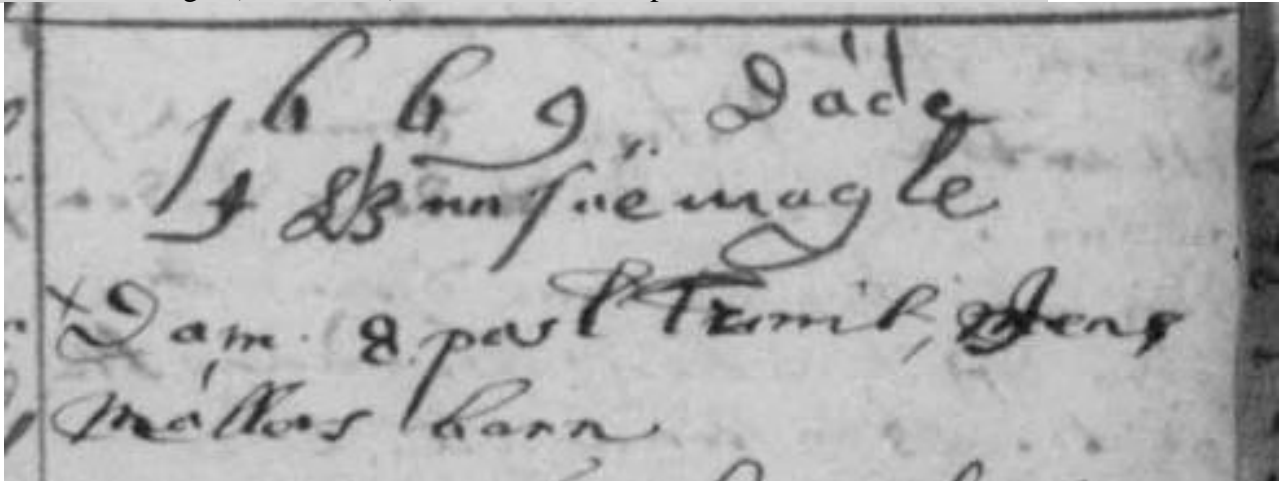 1669. Døde
J Brunsöemagle
Dom. 8 post Trinit, Jens
Møllers barn